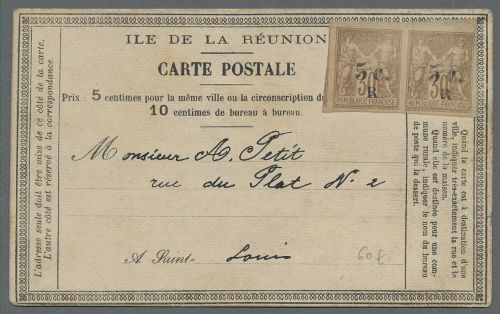 ILE DE LA RÉUNION
CARTE POSTALE
Prix : 5 centimes pour la même ville ou la circonscription du
10 centimes de bureau à bureau.
5 c.
R
30
RÉPUBLIQUE FRANÇAISE
5 c.
R
30
RÉPUBLIQUE FRANÇAISE
Monsieur A. Petit
rue du Plat N. 2
A Saint- Louis
60f
L'adresse seule doit être mise de ce côté de la carte.
L'autre côté est réservé à la correspondance.
Quand la carte est à destination d'une
ville, indiquer très-exactement la rue et le
numéro de la maison.
Quand elle est destinée pour une com-
mune rurale, indiquer le nom du bureau
de poste qui la dessert.